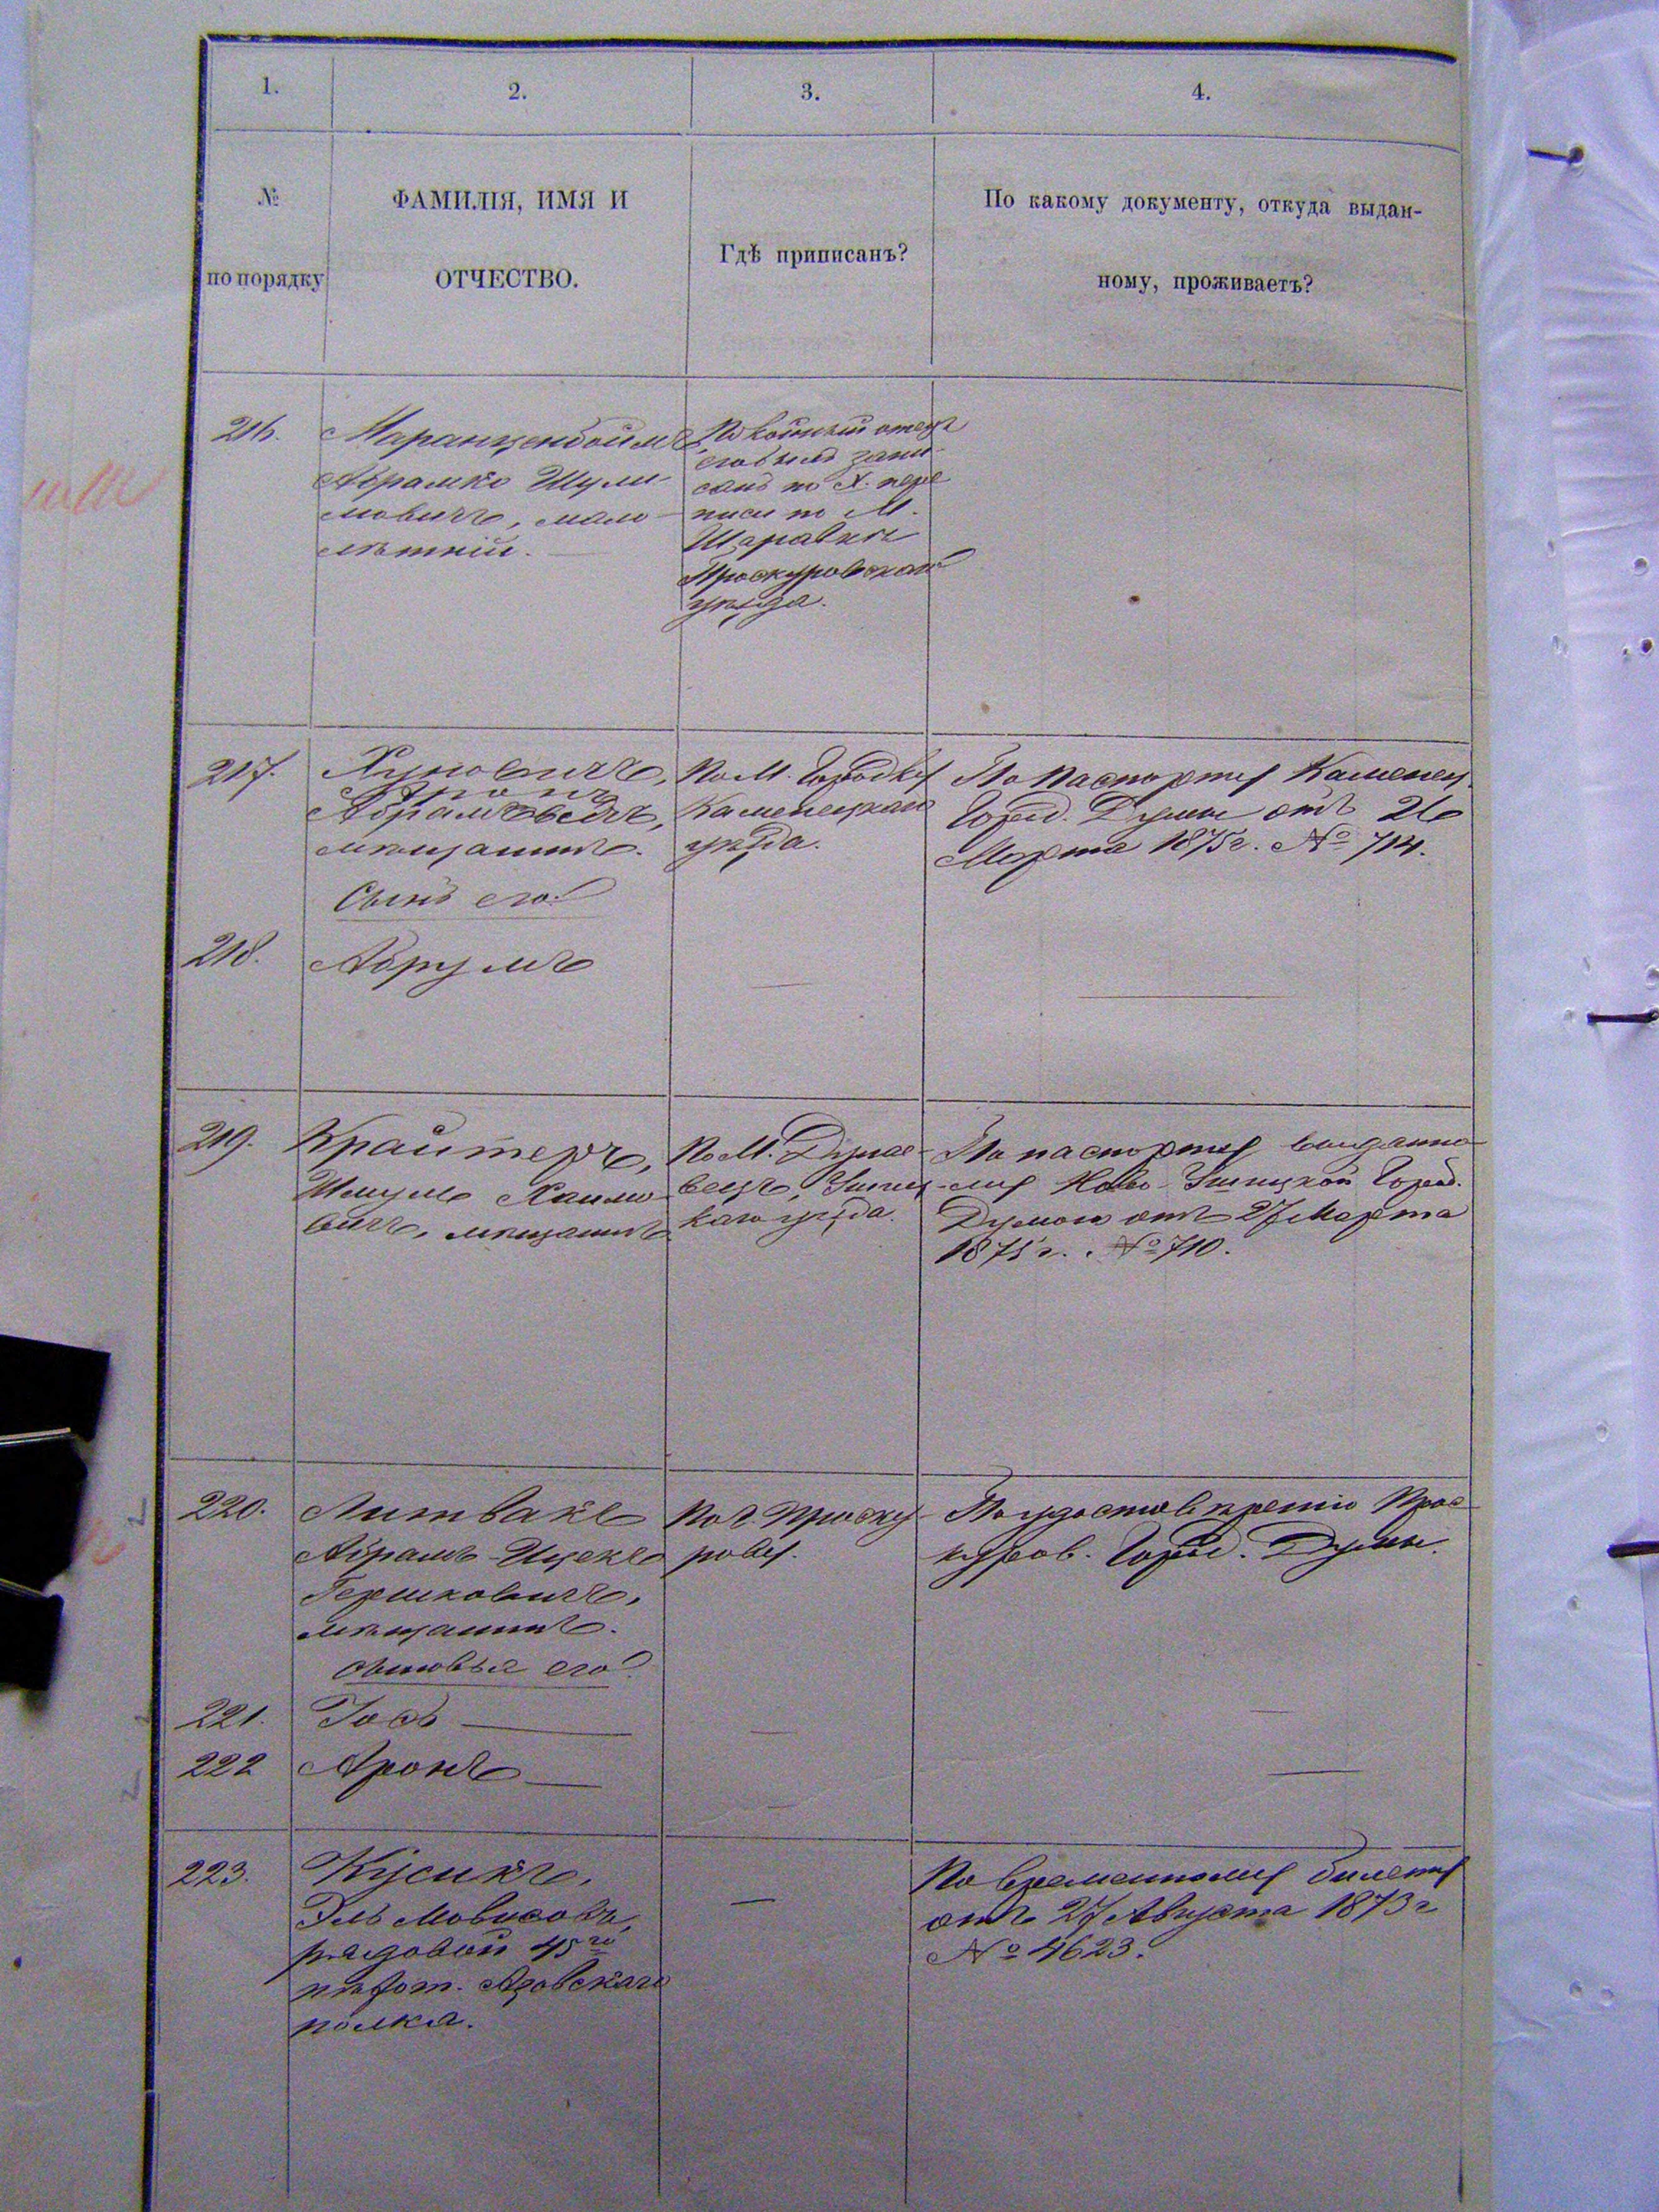 1.
2.
3.
4.
№
по порядку
ФАМИЛІЯ, ИМЯ И
ОТЧЕСТВО.
Гдѣ приписанъ?
По какому документу, откуда выдан-
ному, проживаетъ?
216.
Маранценбоймъ
Абрамко Шули-
мовичъ, мало-
лѣтній.
Покойный отецъ
его былъ запи-
санъ по X. пере
писи по М.
Шаравкѣ
Проскуровскаго
уѣзда.
217.
Хуновичъ,
Аронъ
мѣщанинъ.
По М. Городку
Каменецкаго
уѣзда.
По паспорту Каменец.
Город. Думы отъ 26
Марта 1875 г. № 714.
Сынъ его:
218.
Абрумъ
219.
Крайтеръ,
Шмуль Хаимо-
вичъ, мѣщанинъ
По М. Дунае-
вецъ, Ушиц-
каго уѣзда.
По паспорту выданно-
му Ново-Ушицкой Город.
Думою отъ 27 Марта
1875 г. № 710.
220.
Литвакъ
Абрамъ-Ицекъ
Гершковичъ,
мѣщанинъ.
По г. Проску-
рову.
По удостовѣренію Прос-
куров. Город. Думы.
сыновья его:
221.
Іосъ
222
Аронъ
223.
Кусикъ,
Эль Мовшовъ,
рядовой 45го
пѣхот. Азовскаго
полка.
По временному билету
отъ 27 Августа 1873 г
№ 4623.